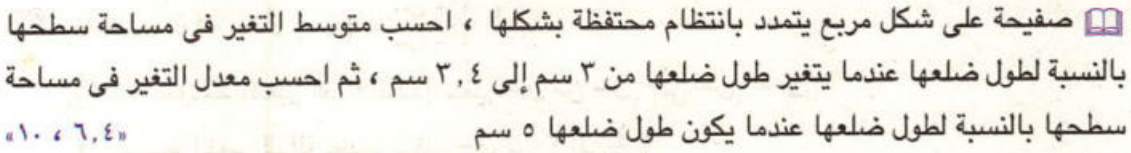 صفيحة على شكل مربع يتمدد بانتظام محتفظة بشكلها ، احسب متوسط التغير فى مساحة سطحها
بالنسبة لطول ضلعها عندما يتغير طول ضلعها من ٣ سم إلى ٣,٤ سم ، ثم احسب معدل التغير فى مساحة
سطحها بالنسبة لطول ضلعها عندما يكون طول ضلعها ٥ سم «٦,٤ ، ١٠»